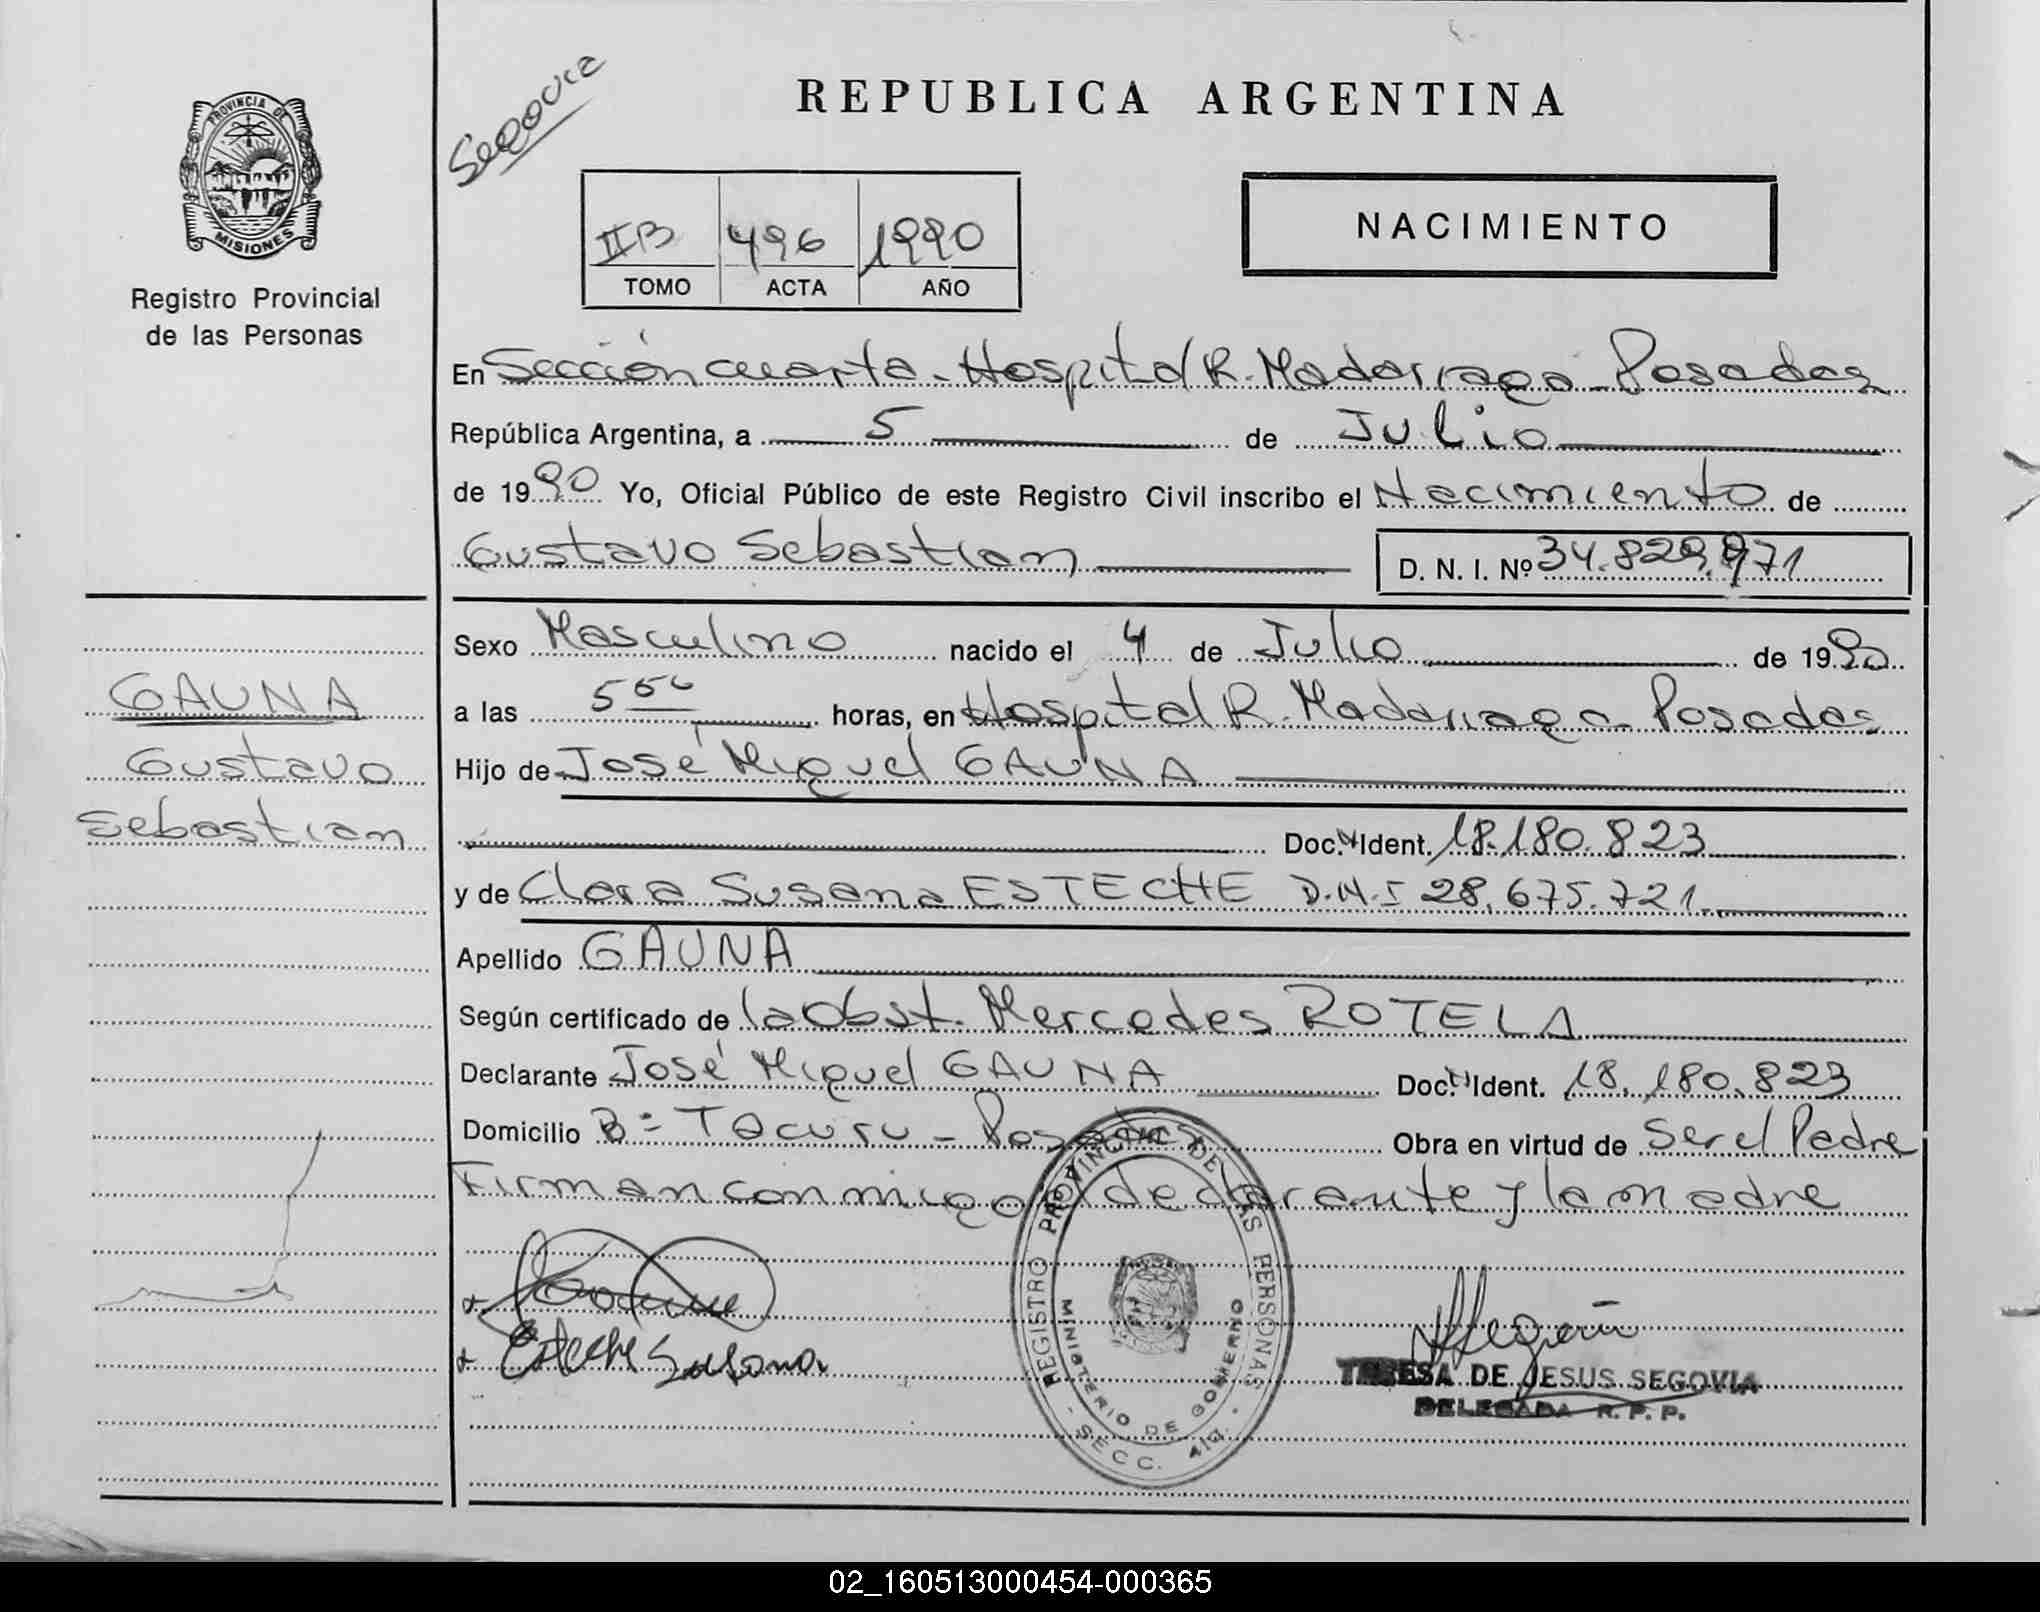 PROVINCIA DE
MISIONES
Registro Provincial
de las Personas
GAUNA
Gustavo
Sebastian
Segovia
REPUBLICA ARGENTINA
IIB 496 1990
TOMO ACTA AÑO
NACIMIENTO
En Sección cuarta - Hospital R. Madariaga - Posadas
República Argentina, a 5 de Julio
de 1990 Yo, Oficial Público de este Registro Civil inscribo el Nacimiento de
Gustavo Sebastian
D. N. I. Nº 34.829.971
Sexo Masculino nacido el 4 de Julio de 1990
a las 5 horas, en Hospital R. Madariaga - Posadas
Hijo de José Miguel GAUNA
Doc. Ident. 18.180.823
y de Clara Susana ESTECHE D.N.I 28.675.721
Apellido GAUNA
Según certificado de la Obst. Mercedes ROTELA
Declarante José Miguel GAUNA Doc. Ident. 18.180.823
Domicilio Bº Tacuru - Posadas Obra en virtud de Ser el Padre
Firman conmigo declarante y la madre
Esteche Susana
REGISTRO PROVINCIAL DE LAS PERSONAS
MINISTERIO DE GOBIERNO
SECC. 4ta.
TERESA DE JESUS SEGOVIA
DELEGADA R. P. P.
02_160513000454-000365